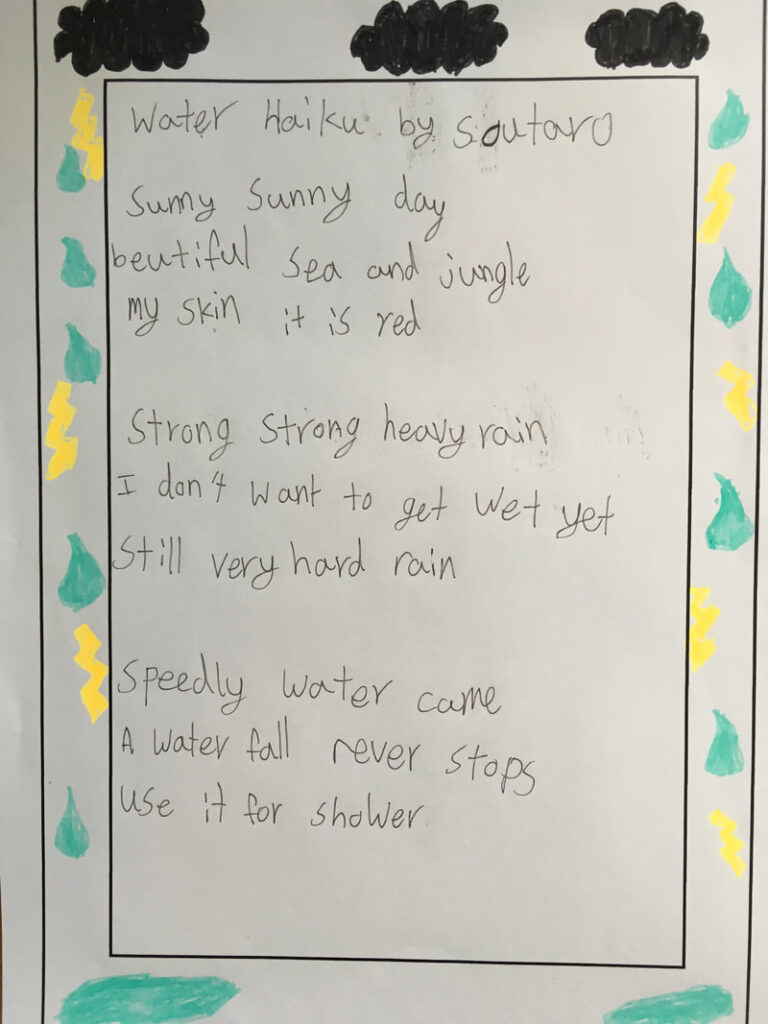 Water Haiku by Soutaro
Sumy Sunny day
beutiful sea and jungle
my skin it is red
Strong strong heavy rain
I don't want to get wet yet
Still very hard rain
Speedly water came
A water fall never stops
use it for shower